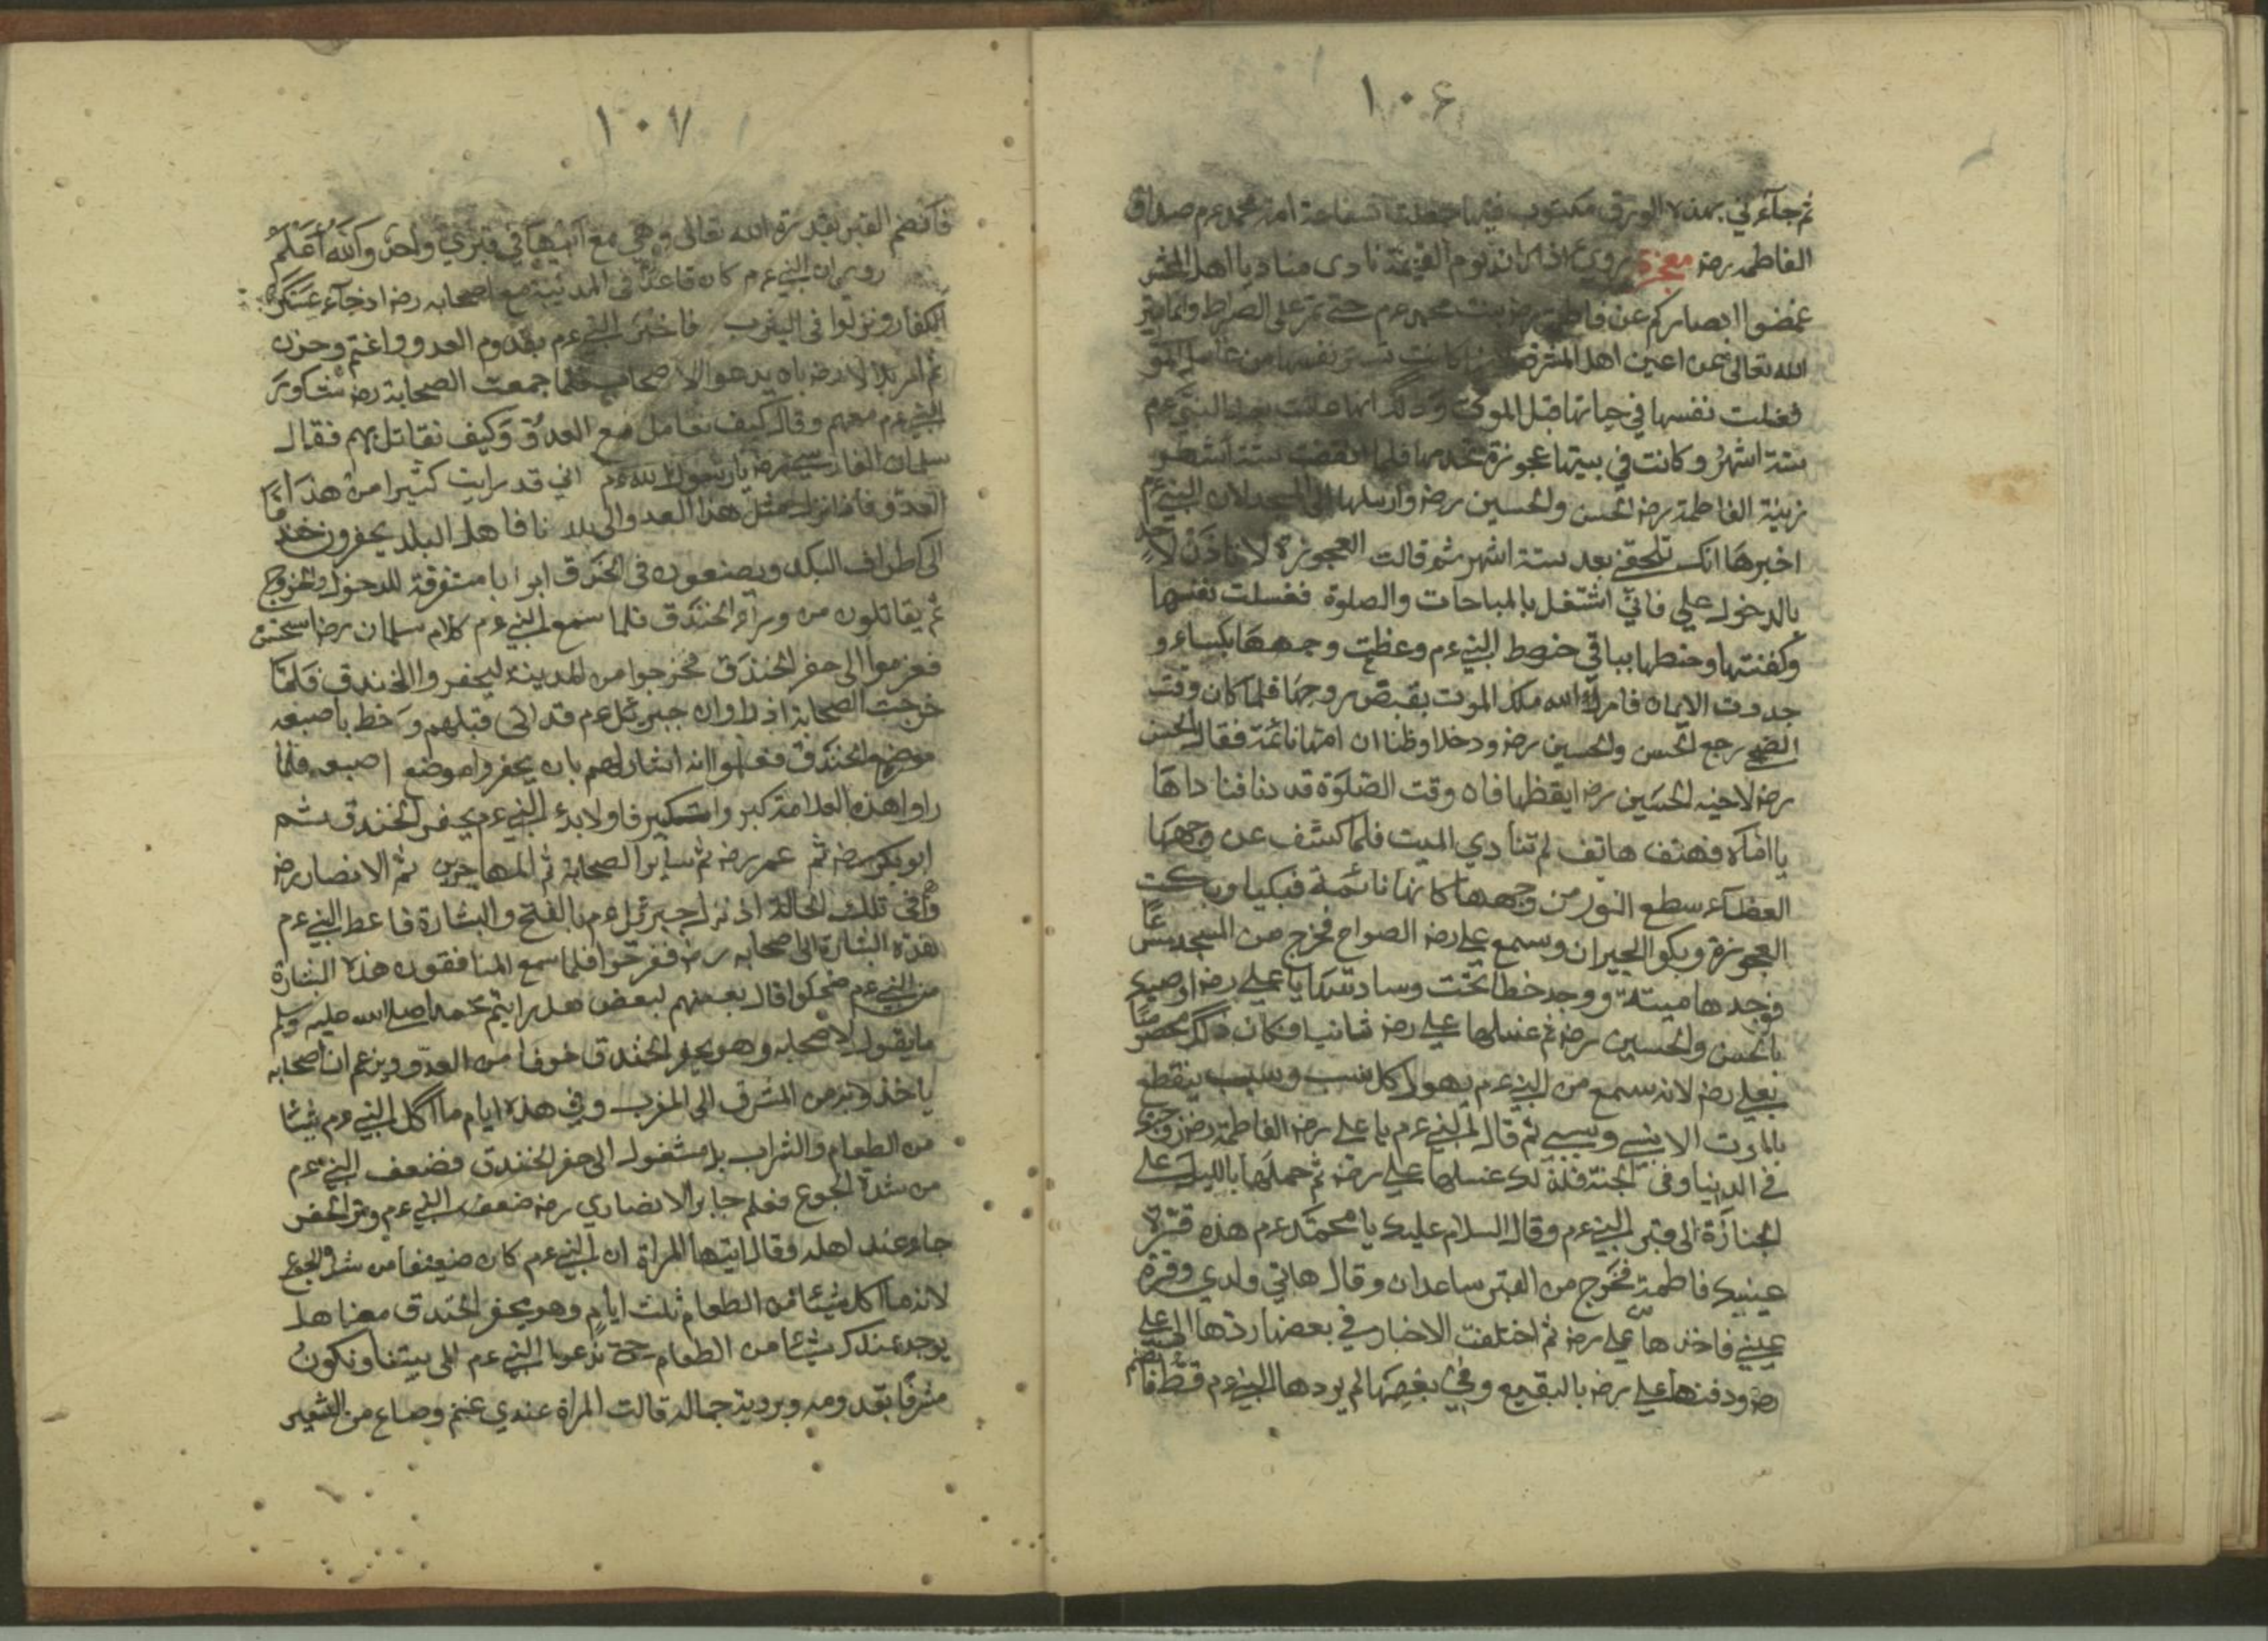 ١٠٦
ثم جآءني بهذه الورق مكتوب فيها جعلت شفاعة امة محمد عم صداق
الفاطمه رضه معجزة روي اذا كان يوم القيمة نادى منادي يا اهل المحشر
غمضوا ابصاركم عن فاطمة رضه بنت محمد عم حتى تمر على الصراط وانما يستر
الله تعالى عن اعين اهل المشرف كانت تستر نفسها من غاسل الموتى
فغسلت نفسها في حياتها قبل الموت وذلك انها عاشت بعد النبي عم
ستة اشهر وكانت في بيتها عجوزة تخدمها فلما انقضت ستة اشهر
زينة الفاطمة رضه الحسن والحسين رضه وارسلها الى المسجد لان النبي عم
اخبرها انك تلحقني بعد ستة اشهر ثم قالت العجوزة لا تاذن لاحد
بالدخول علي فاني اشتغل بالمباحات والصلوة فغسلت نفسها
وكفنتها وحنطها بباقي حنوط النبي عم وعظت وجهها بكساء و
جددت الايمان فامر الله ملك الموت بقبض روحها فلما كان وقت
الضحى رجع الحسن والحسين رضه ودخلا وظنا ان امتها نائمة فقال الحسن
رضه لاخيه الحسين رضه ايقظها فان وقت الصلوة قد دنا فناداها
يا اماه فهتف هاتف لم تنادي الميت فلما كشف عن وجهها
الغطاء سطع النور من وجهها كانها نائمة فبكيا وبكت
العجوزة وبكوا الجيران وسمع علي رضه الصواح فخرج من المسجد مسرعا
فوجدها ميتة ووجد خطا تحت وسادتها يا علي رضه اوصيك
بالحسن والحسين رضه ثم غسلها علي رضه ثانيا وكان ذلك مخصوصا
بعلي رضه لانه سمع من النبي عم يقول كل نسب وسبب ينقطع
بالموت الا نسبي وسببي ثم قال النبي عم يا علي رضه الفاطمة رضه زوجك
في الدنيا وفي الجنة فلذلك غسلها علي رضه ثم حملها بالليل على
الجنازة الى قبر النبي عم وقال السلام عليك يا محمد عم هذه قرة
عينيك فاطمة فخرج من القبر ساعدان وقال هاتي ولدي وقرة
عيني فاخذها علي رضه ثم اختلفت الاخبار في بعضها ردها الى علي
رضه ودفنها علي رضه بالبقيع وفي بعضها لم يردها النبي عم قط فانضم
١٠٧
فانضم القبر بقدرة الله تعالى وهي مع ابيها في قبري واحد والله اعلم
روي ان النبي عم كان قاعدا في المدينة مع اصحابه رضه اذ جآء عسكر
الكفار ونزلوا في اليثرب فاخبر النبي عم بقدوم العدو واغتم وحزن
ثم امر بلالا رضه بان يدعوا الاصحاب فلما جمعت الصحابة رضه تشاور
النبي عم معهم وقال كيف نعامل مع العدو وكيف نقاتل بهم فقال
سلمان الفارسي رضه يا رسول الله عم اني قد رايت كثيرا من هذا
العدو فاذا نزل مثل هذا العدو الى بلادنا فاهل البلد يحفرون خندقا
الى اطراف البلد ويصنعون في الخندق ابوابا متفرقة للدخول والخروج
ثم يقاتلون من ورآء الخندق فلما سمع النبي عم كلام سلمان رضه استحسن
فعزموا الى حفر الخندق فخرجوا من المدينة ليحفروا الخندق فلما
خرجت الصحابة اذ راوا ان جبرئل عم قد اتى قبلهم وخط باصبعه
موضع الخندق فعلموا انه اشار لهم بان يحفروا موضع اصبعه فلما
راوا هذه العلامة كبر واستكبر فاولا بدء النبي عم يحفر الخندق ثم
ابو بكر رضه ثم عمر رضه ثم ساير الصحابة ثم المهاجرين ثم الانصار رضه
وفي تلك الحالة اذ نزل جبرئيل عم بالفتح والبشارة فاعط النبي عم
هذه البشارة الى اصحابه رضه ففرحوا فلما سمع المنافقون هذه البشارة
من النبي عم ضحكوا قال بعضهم لبعض هل رايتم محمدا صلى الله عليه وسلم
ما يقول لاصحابه وهو يحفر الخندق خوفا من العدو ويزعم ان اصحابه
ياخذونه من المشرق الى المغرب وفي هذه ايام ما اكل النبي عم شيئا
من الطعام والشراب بل مشغول الى حفر الخندق فضعف النبي عم
من شدة الجوع فعلم جابر الانصاري رضه ضعف النبي عم وترك الحفر
جاء عند اهله وقال ايتها المراة ان النبي عم كان ضعيفا من شدة الجوع
لانه ما اكل شيئا من الطعام ثلث ايام وهو يحفر الخندق معنا هل
يوجد عندك شيئا من الطعام حتى ندعوا النبي عم الى بيتنا ونكون
مشرفا بقدومه وبرؤية جماله قالت المراة عندي غنم وصاع من الشعير